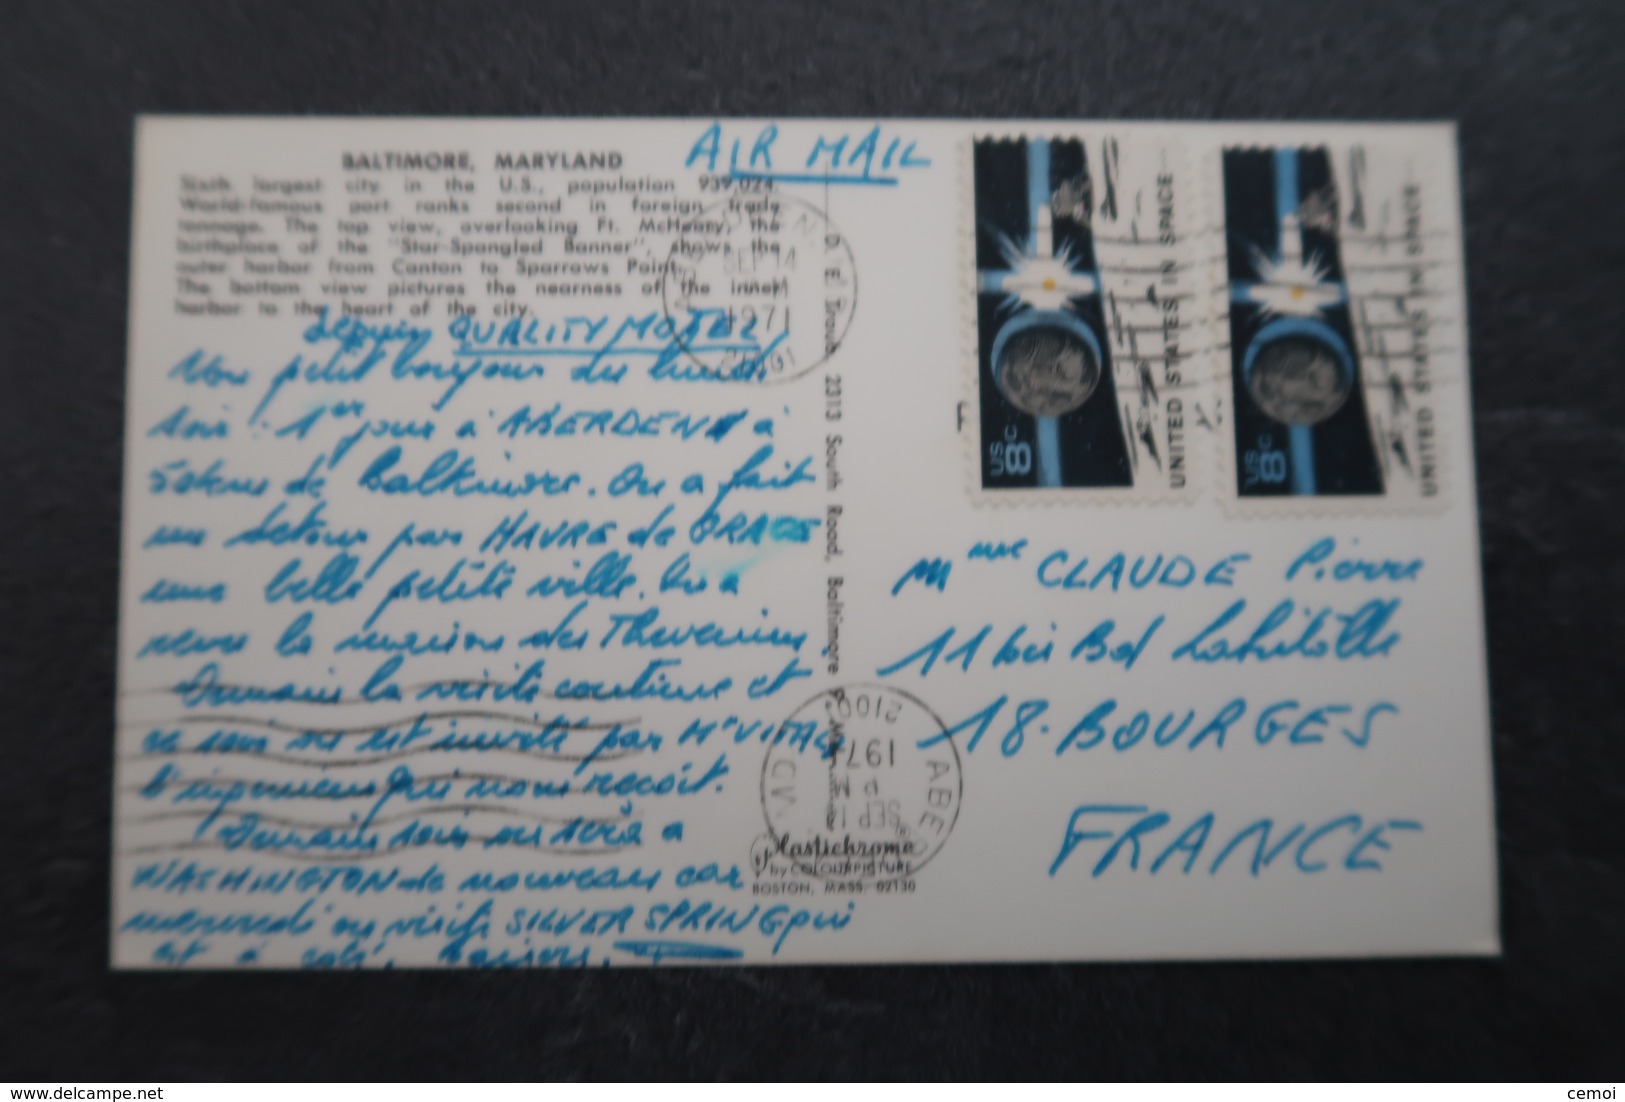 BALTIMORE, MARYLAND
Sixth largest city in the U.S., population 939,024.
World-famous port ranks second in foreign trade
tonnage. The top view, overlooking Ft. McHenry, the
birthplace of the "Star-Spangled Banner", shows the
outer harbor from Canton to Sparrows Point.
The bottom view pictures the nearness of the inner
harbor to the heart of the city.
AIR MAIL
depuis QUALITY MOTEL
petit bonjour du lundi
soir : 1er jour à ABERDEEN à
de Baltimore. On a fait
un détour par HAVRE de GRACE
une belle petite ville. On a
revu la maison des Thevenin
Demain la visite continue et
ce soir on est invité par Mr VITAL
l'ingénieur qui nous reçoit.
Demain soir on sera à
WASHINGTON de nouveau car
mercredi on visite SILVER SPRING qui
est à côté. Baisers.
D. E. Traub, 2313 South Road, Baltimore 9, Maryland
SEP 14
PM
1971
21001
ABE
MD
SEP 1
PM
197
2100
Plastichrome
by COLOURPICTURE
BOSTON, MASS. 02130
US 8c
UNITED STATES IN SPACE...
US 8c
UNITED STATES IN SPACE...
Mme CLAUDE Pierre
11 bis Bd Lahitolle
18. BOURGES
FRANCE
delcampe.net
cemoi